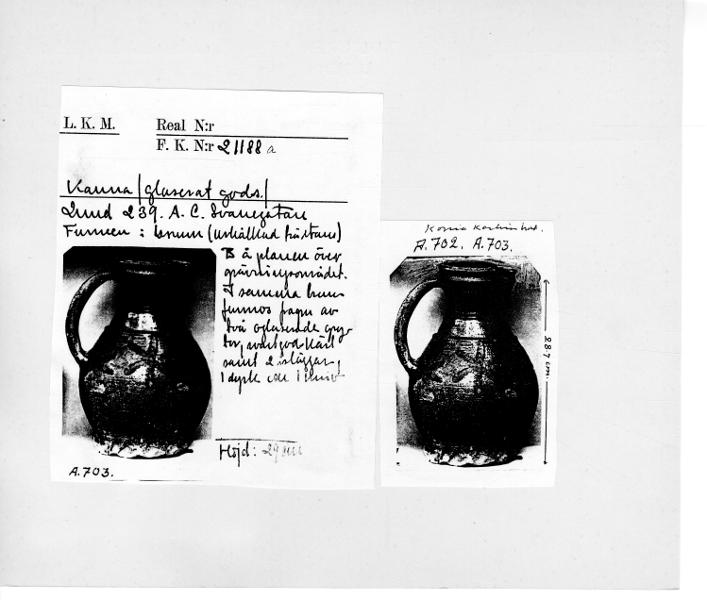 L. K. M. Real N:r
F. K. N:r 21188 a
Kanna / glaserat gods /
Lund 239. A. C. Svanegatan
Funnen: brunn (urhålkad trästam)
B å planen över
grävningsområdet.
I samma brunn
funnos fragm av
två oglaserade gry-
tor, svartgods kärl
samt 2 släggor,
1 dyrk
Höjd: 29 cm
A.703.
A.702. A.703.
28,7 cm